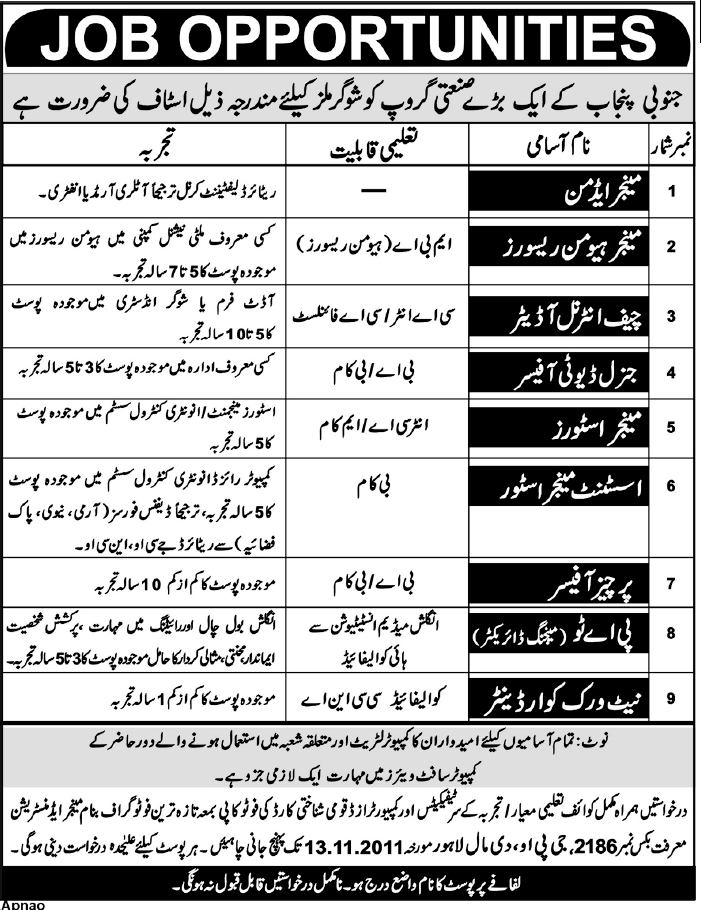 JOB OPPORTUNITIES
جنوبی پنجاب کے ایک بڑے صنعتی گروپ کو شوگر ملز کیلئے مندرجہ ذیل اسٹاف کی ضرورت ہے
نمبر شمار نام آسامی تعلیمی قابلیت تجربہ
1 مینجر ایڈمن — ریٹائرڈ لیفٹیننٹ کرنل ترجیحاً آٹلری آرمڈ یا انفنٹری۔
2 مینجر ہیومن ریسورز ایم بی اے (ہیومن ریسورز) کسی معروف ملٹی نیشنل کمپنی میں ہیومن ریسورز میں
موجودہ پوسٹ کا 5 تا 7 سالہ تجربہ۔
3 چیف انٹرنل آڈیٹر سی اے انٹر / سی اے فائنلسٹ آڈٹ فرم یا شوگر انڈسٹری میں موجودہ پوسٹ
کا 5 تا 10 سالہ تجربہ
4 جنرل ڈیوٹی آفیسر بی اے / بی کام کسی معروف ادارہ میں موجودہ پوسٹ کا 3 تا 5 سالہ تجربہ
5 مینجر اسٹورز انٹر سی اے / ایم کام اسٹورز مینجمنٹ / انونٹری کنٹرول سسٹم میں موجودہ پوسٹ
کا 5 سالہ تجربہ
6 اسسٹنٹ مینجر اسٹور بی کام کمپیوٹر رائزڈ انونٹری کنٹرول سسٹم میں موجودہ پوسٹ
کا 5 سالہ تجربہ، ترجیحاً ڈیفنس فورسز (آرمی، نیوی، پاک
فضائیہ) سے ریٹائرڈ جے سی او، این سی او۔
7 پرچیز آفیسر بی اے / بی کام موجودہ پوسٹ کا کم از کم 10 سالہ تجربہ
8 پی اے ٹو (مینجنگ ڈائریکٹر) انگلش میڈیم انسٹیٹیوشن سے
ہائی کوالیفائیڈ انگلش بول چال اور رائیٹنگ میں مہارت، پرکشش شخصیت
ایماندار، محنتی، مثالی کردار کا حامل موجودہ پوسٹ کا 3 تا 5 سالہ تجربہ۔
9 نیٹ ورک کوارڈینٹر کوالیفائیڈ سی سی این اے موجودہ پوسٹ کا کم از کم 1 سالہ تجربہ
نوٹ: تمام آسامیوں کیلئے امیدواران کا کمپیوٹر لٹریٹ اور متعلقہ شعبہ میں استعمال ہونے والے دور حاضر کے
کمپیوٹر سافٹ ویئرز میں مہارت ایک لازمی جزو ہے۔
درخواستیں ہمراہ مکمل کوائف تعلیمی معیار / تجربہ کے سرٹیفکیٹس اور کمپیوٹرائزڈ قومی شناختی کارڈ کی فوٹو کاپی بمعہ تازہ ترین فوٹو گراف بنام مینجر ایڈمنسٹریشن
معرفت بکس نمبر 2186، جی پی او، دی مال لاہور مورخہ 13.11.2011 تک پہنچ جانی چاہئیں۔ ہر پوسٹ کیلئے علیحدہ درخواست دینی ہوگی۔
لفافے پر پوسٹ کا نام واضع درج ہو۔ نامکمل درخواستیں قابل قبول نہ ہونگی۔
Apnao